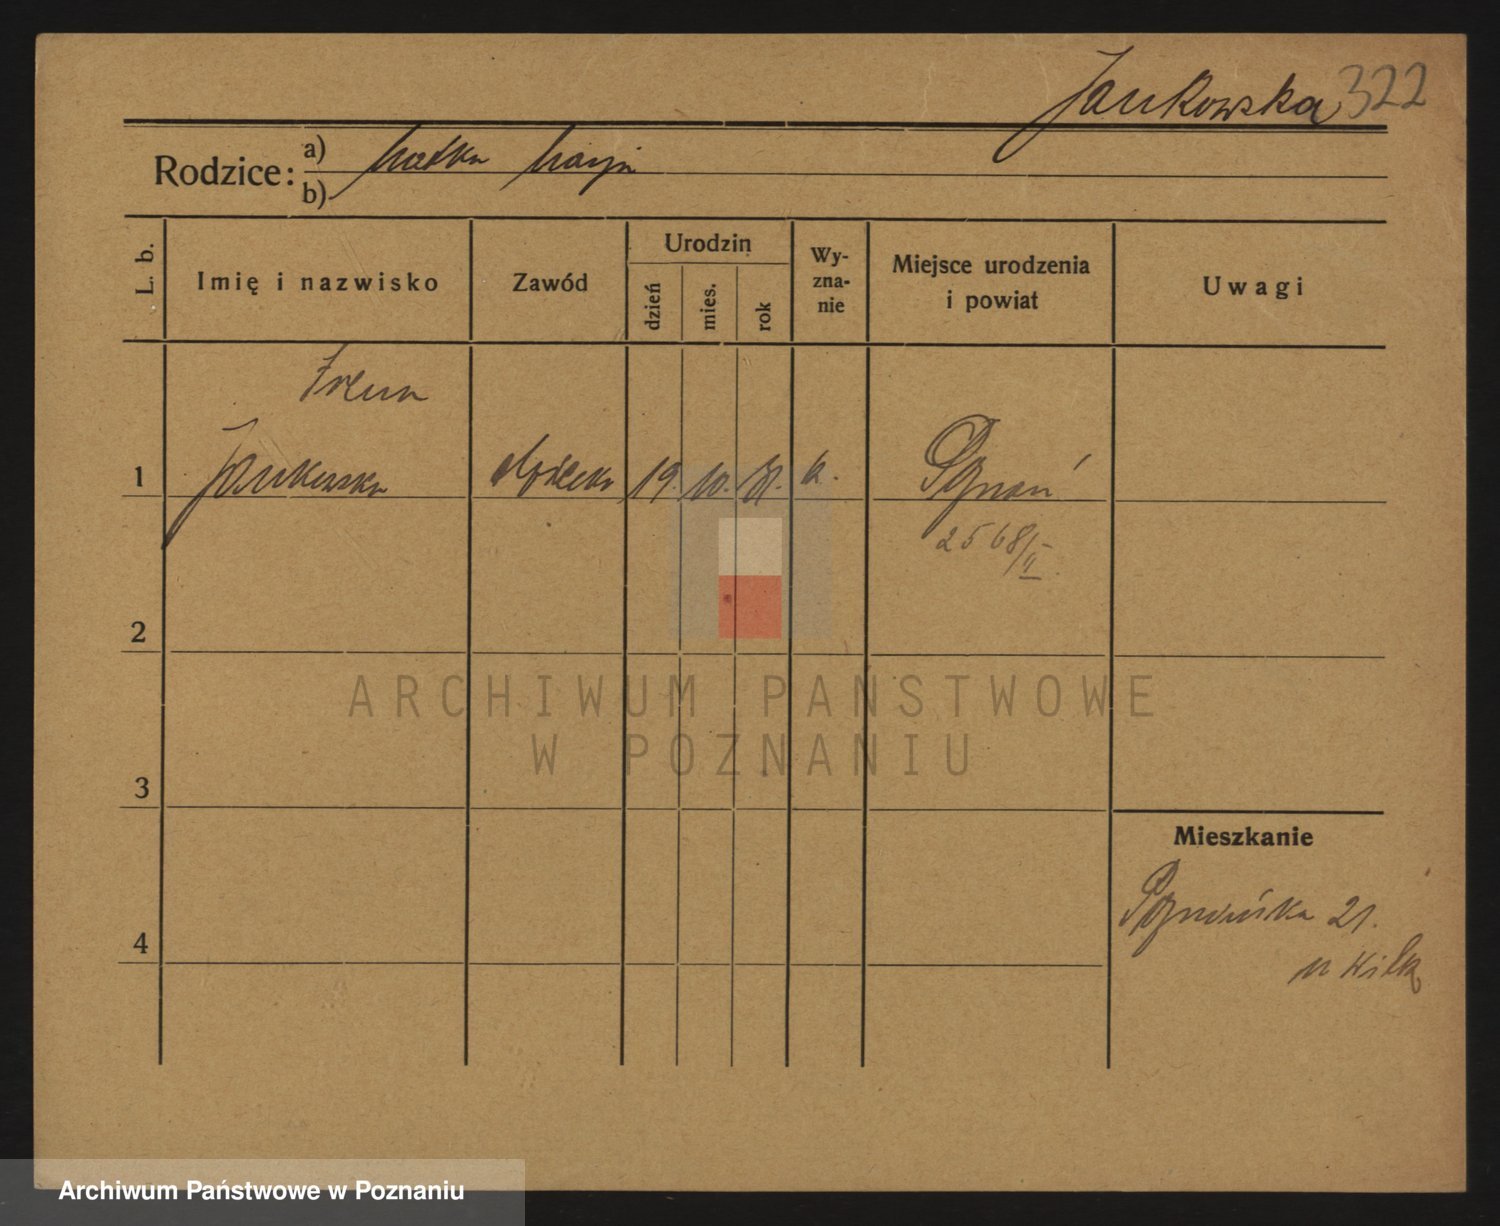 Jankowska 322
Rodzice: a) Matka Marja
b)
L. b.
Imię i nazwisko
Zawód
Urodzin
dzień
mies.
rok
Wy-
zna-
nie
Miejsce urodzenia
i powiat
Uwagi
Irena
1 Jankowska 19. 10. 31. k. Poznań
2568/II
2
3
4
Mieszkanie
Poznańska 21.
u Wilk
ARCHIWUM PAŃSTWOWE
W POZNANIU
Archiwum Państwowe w Poznaniu